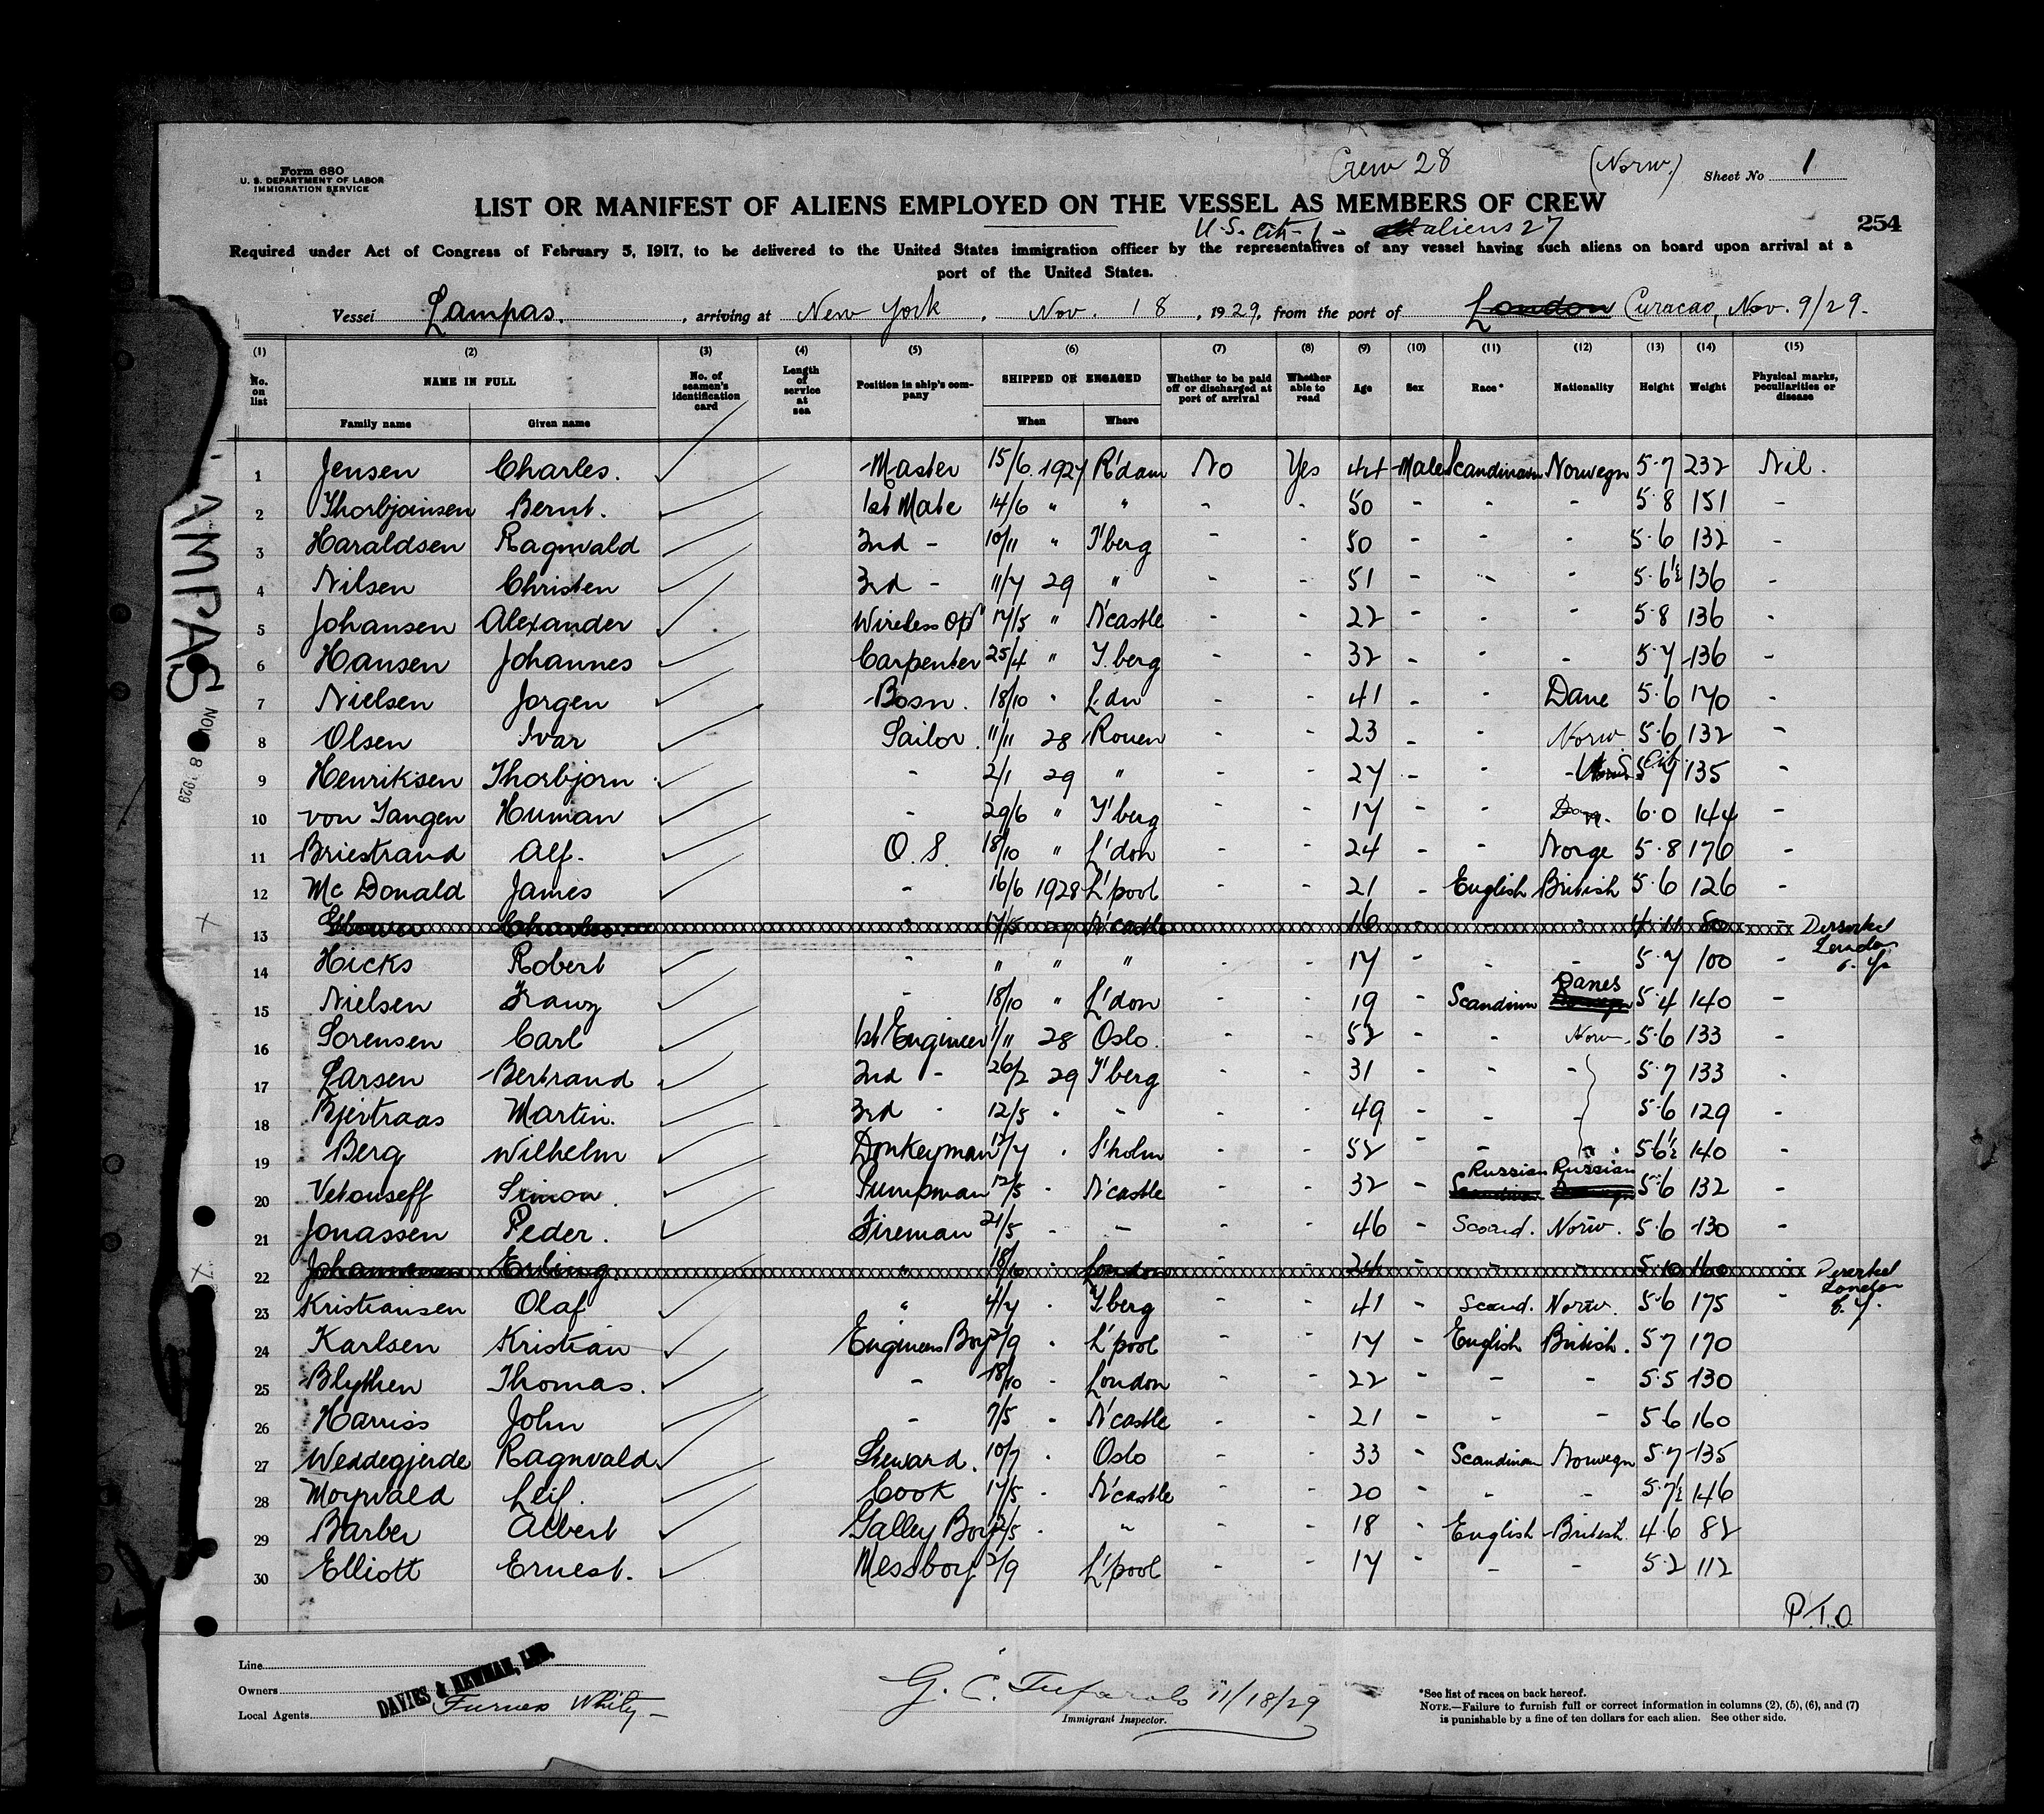 Crew 28 (Norw.) Sheet No 1
Form 680
U. S. DEPARTMENT OF LABOR
IMMIGRATION SERVICE
LIST OR MANIFEST OF ALIENS EMPLOYED ON THE VESSEL AS MEMBERS OF CREW
254
U.S. Cit - 1 - aliens 27
Required under Act of Congress of February 5, 1917, to be delivered to the United States immigration officer by the representatives of any vessel having such aliens on board upon arrival at a
port of the United States.
Vessel Lampas. , arriving at New York , Nov. 18 , 1929, from the port of London Curacao, Nov. 9/29.
(1) (2) (3) (4) (5) (6) (7) (8) (9) (10) (11) (12) (13) (14) (15)
No. on list NAME IN FULL No. of seamen's identification card Length of service at sea Position in ship's company SHIPPED OR ENGAGED Whether to be paid off or discharged at port of arrival Whether able to read Age Sex Race* Nationality Height Weight Physical marks, peculiarities or disease
Family name Given name When Where
1 Jensen Charles. Master 15/6 1927 R'dam No Yes 44 Male Scandinavn Norwegn 5·7 232 Nil.
2 Thorbjörnsen Bernt. 1st Mate 14/6 " " - - 50 - - - 5·8 151 -
3 Haraldsen Ragnvald 2nd - 10/11 " T'berg - - 50 - - - 5·6 132 -
4 Nilsen Christen 3rd - 11/7 29 " - - 51 - - - 5·6½ 136 -
5 Johansen Alexander Wireless Opr 17/5 " N'castle - - 22 - - - 5·8 136 -
6 Hansen Johannes Carpenter 25/4 " T.berg - - 32 - - - 5·7 136 -
7 Nielsen Jorgen Bosn. 18/10 " L'dn - - 41 - - Dane 5·6 170 -
8 Olsen Ivar Sailor 11/11 28 Rouen - - 23 - - Norw 5·6 132 -
9 Henriksen Thorbjorn - 2/1 29 " - - 27 - - U.S. Cit 5·7 135 -
10 von Tangen Human - 29/6 " T'berg - - 17 - - 6·0 144 -
11 Briestrand Alf. O.S. 18/10 " L'don - - 24 - - Norge 5·8 176 -
12 Mc Donald James - 16/6 1928 L'pool - - 21 - English British 5·6 126 -
13 Charles - 17/5 29 N'castle - - 16 - - - 4·11 80 - Deserted London
14 Hicks Robert - " " " - - 17 - - - 5·7 100 -
15 Nielsen Franz - 18/10 " L'don - - 19 - Scandinvn Danes 5·4 140 -
16 Sorensen Carl 1st Engineer 1/11 28 Oslo. - - 52 - - Norw. 5·6 133 -
17 Larsen Bertrand 2nd - 26/2 29 T'berg - - 31 - - - 5·7 133 -
18 Bjertraas Martin. 3rd - 12/5 " - - - 49 - - - 5·6 129 -
19 Berg Wilhelm Donkeyman 12/7 " S'holm - - 52 - - - 5·6½ 140 -
20 Vetouseff Simon. Pumpman 12/5 - N'castle - - 32 - Russian Russian 5·6 132 -
21 Jonassen Peder. Fireman 21/5 - - - - 46 - Scand. Norw. 5·6 130 -
22 Johannesen Erling " 18/10 - London - - 24 - - - 5·10 160 - Deserted London
23 Kristiansen Olaf " 4/7 - T.berg - - 41 - Scand. Norw. 5·6 175 -
24 Karlsen Kristian Engineers Boy 2/9 - L'pool - - 17 - English British. 5·7 170
25 Blythen Thomas. - 18/10 - London - - 22 - - - 5·5 130
26 Harriss John - 7/5 - N'castle - - 21 - - - 5·6 160
27 Weddegjerde Ragnvald Steward. 10/7 - Oslo - - 33 - Scandinan Norwegn 5·7 135
28 Moywald Leif. Cook 17/5 - N'castle - - 20 - - - 5·7½ 146
29 Barber Albert Galley Boy 12/5 - " - - 18 - English British. 4·6 82
30 Elliott Ernest. Messboy 2/9 L'pool - - 17 - - - 5·2 112
P.T.O.
LAMPAS
NOV 18 1929
Line
Owners DAVIES & NEWMAN, LTD.
Local Agents Furness Whity -
G. C. 11/18/29
Immigrant Inspector.
*See list of races on back hereof.
NOTE.—Failure to furnish full or correct information in columns (2), (5), (6), and (7)
is punishable by a fine of ten dollars for each alien. See other side.